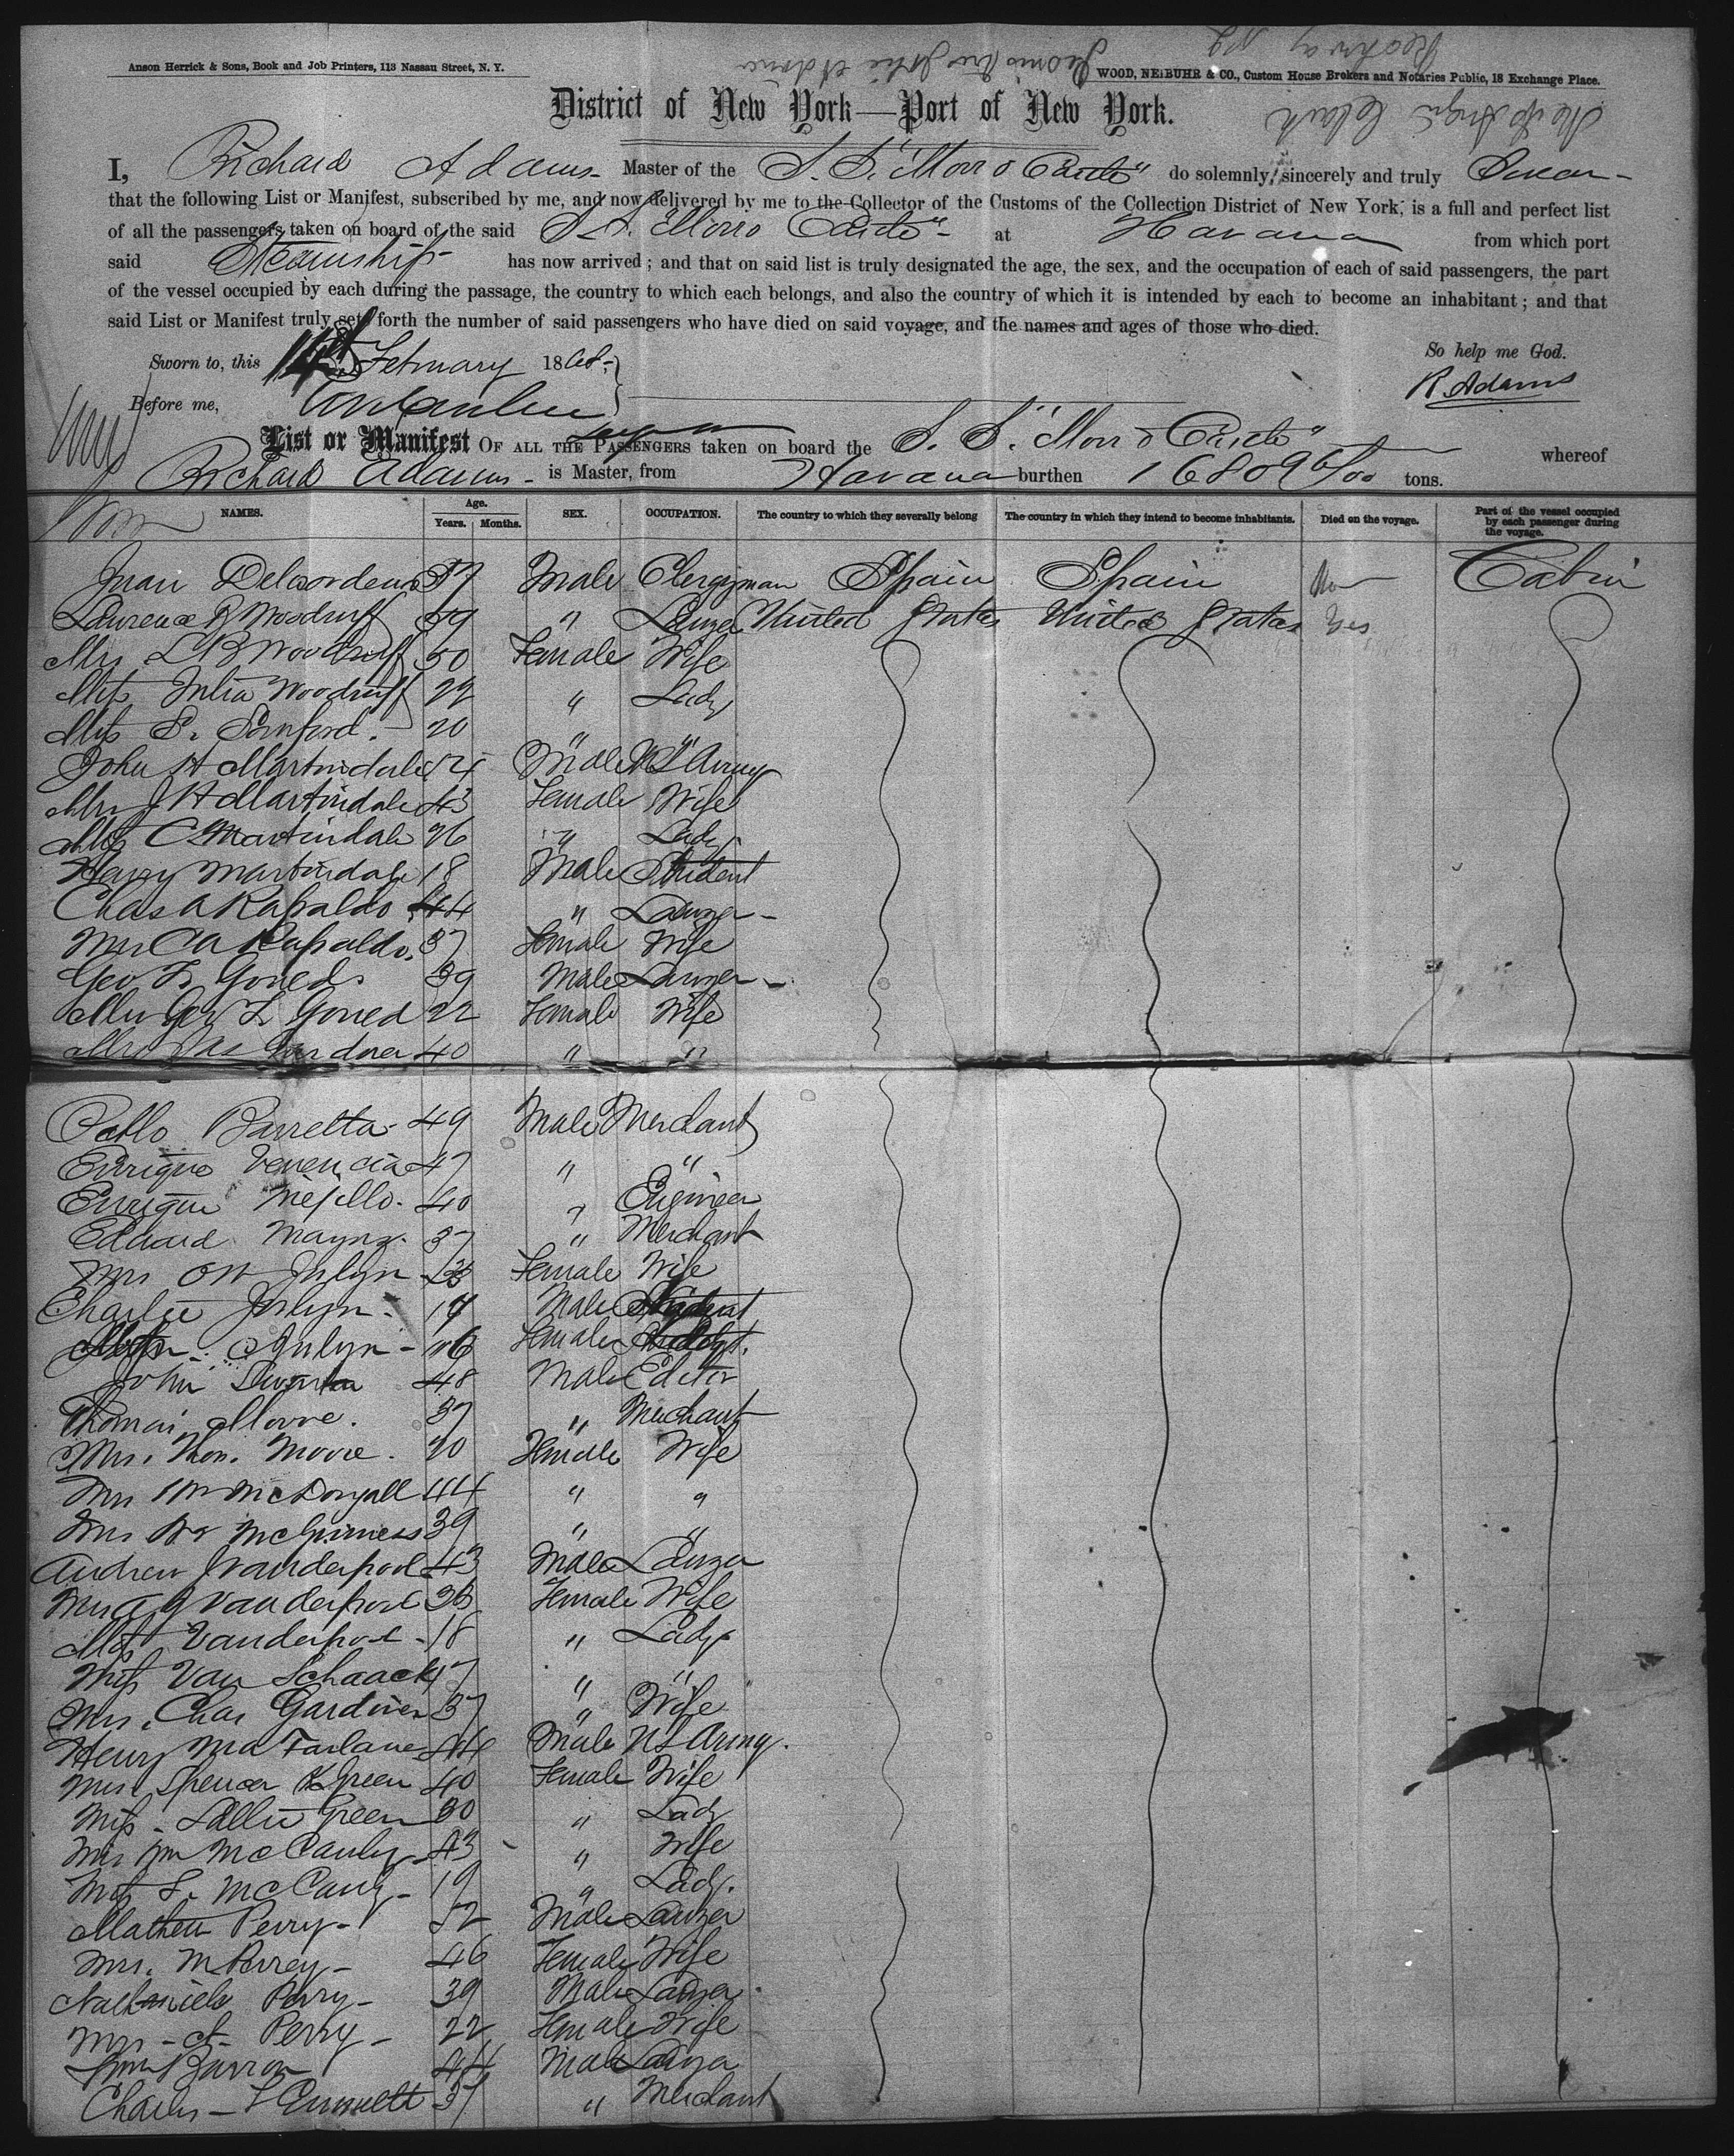 Anson Herrick & Sons, Book and Job Printers, 113 Nassau Street, N. Y.
WOOD, NEIBUHR & CO., Custom House Brokers and Notaries Public, 18 Exchange Place.
District of New York—Port of New York.
I, Richard Adams Master of the S. S. "Morro Castle" do solemnly, sincerely and truly Swear
that the following List or Manifest, subscribed by me, and now delivered by me to the Collector of the Customs of the Collection District of New York, is a full and perfect list
of all the passengers taken on board of the said S. S. "Morro Castle" at Havana from which port
said Steamship has now arrived; and that on said list is truly designated the age, the sex, and the occupation of each of said passengers, the part
of the vessel occupied by each during the passage, the country to which each belongs, and also the country of which it is intended by each to become an inhabitant; and that
said List or Manifest truly sets forth the number of said passengers who have died on said voyage, and the names and ages of those who died.
Sworn to, this February 18 So help me God.
Before me, R. Adams
List or Manifest OF ALL THE PASSENGERS taken on board the S. S. "Morro Castle" whereof
Richard Adams is Master, from Havana burthen 1680 96/100 tons.
NAMES. Age. Years. Months. SEX. OCCUPATION. The country to which they severally belong The country in which they intend to become inhabitants. Died on the voyage. Part of the vessel occupied by each passenger during the voyage.
Juan 57 Male Clergyman Spain Spain No Cabin
Laurence B Woodruff 59 " Lawyer United States United States
Mrs L B Woodruff 50 Female Wife
Miss Julia Woodruff 22 " Lady
Miss S. Sanford. 20 "
John H Martindale Male US Army
Mrs J H Martindale 43 Female Wife
Miss C Martindale 26 " Lady
Harry Martindale 18 Male Student
Chas A Rapaldo 44 " Lawyer
Mrs C A Rapaldo. 37 Female Wife
Geo L Goned 39 Male Lawyer
Mrs Geo L Goned 22 Female Wife
Mrs Jas Gardner 40 " "
Pablo Barretta 49 Male Merchant
Enrique 47 " "
Enrique 40 " Engineer
Eduard 37 " Merchant
Mrs Joslyn Female Wife
Charlie Joslyn Male Student
Joslyn Female
John 48 Male Editor
Thomas Moore. 37 " Merchant
Mrs. Thos. Moore. Female Wife
Mrs Wm McDougall 44 " "
Mrs McGinness 39 " "
Andrew J Vanderpool 43 Male Lawyer
Mrs A J Vanderpool Female Wife
Miss Vanderpool 18 " Lady
Miss Van Schaack 17 " "
Mrs. Chas Gardiner 37 " Wife
Henry Mac Farlane 44 Male US Army.
Mrs. Spencer K Green 40 Female Wife
Miss Sallie Green 30 " Lady
Mrs Wm McCauly 43 " Wife
Miss L. McCauly 19 " Lady.
Mathew Perry 52 Male Lawyer
Mrs. M Perry 46 Female Wife
Nathaniel Perry 39 Male Lawyer
Mrs N Perry 22 Female Wife
Wm Barron 44 Male Lawyer
Charles L Emmett 37 " Merchant